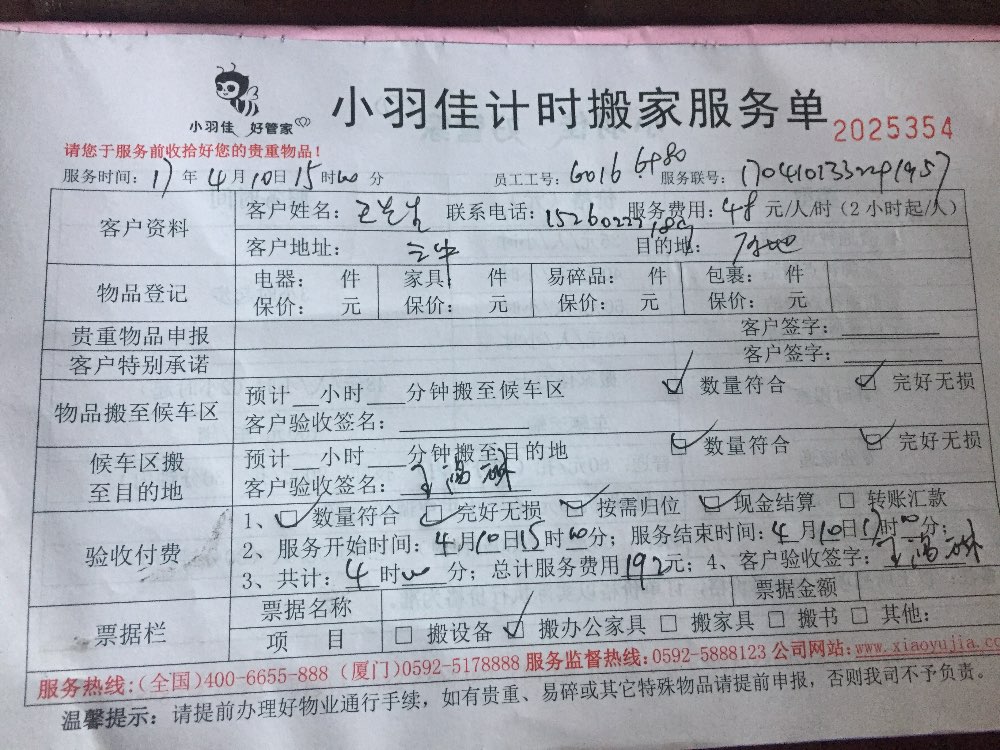 小羽佳 好管家
小羽佳计时搬家服务单 2025354
请您于服务前收拾好您的贵重物品！
服务时间：17年4月10日15时00分 员工工号：6016 6980 服务联号：
客户资料 客户姓名：王先生 联系电话： 服务费用：48元/人/时（2小时起/人）
客户地址： 目的地：
物品登记 电器： 件 家具 件 易碎品： 件 包裹： 件
保价： 元 保价： 元 保价： 元 保价： 元
贵重物品申报 客户签字：
客户特别承诺 客户签字：
物品搬至候车区 预计 小时 分钟搬至候车区 数量符合 完好无损
客户验收签名：
候车区搬至目的地 预计 小时 分钟搬至目的地 数量符合 完好无损
客户验收签名：
验收付费 1、数量符合 完好无损 按需归位 现金结算 转账汇款
2、服务开始时间：4月10日15时00分；服务结束时间：4月10日17时00分；
3、共计：4时00分；总计服务费用192元；4、客户验收签字：
票据栏 票据名称 票据金额
项 目 搬设备 搬办公家具 搬家具 搬书 其他：
服务热线:(全国)400-6655-888 (厦门)0592-5178888 服务监督热线:0592-5888123 公司网站:www.xiaoyujia.co
温馨提示：请提前办理好物业通行手续，如有贵重、易碎或其它特殊物品请提前申报，否则我司不予负责。